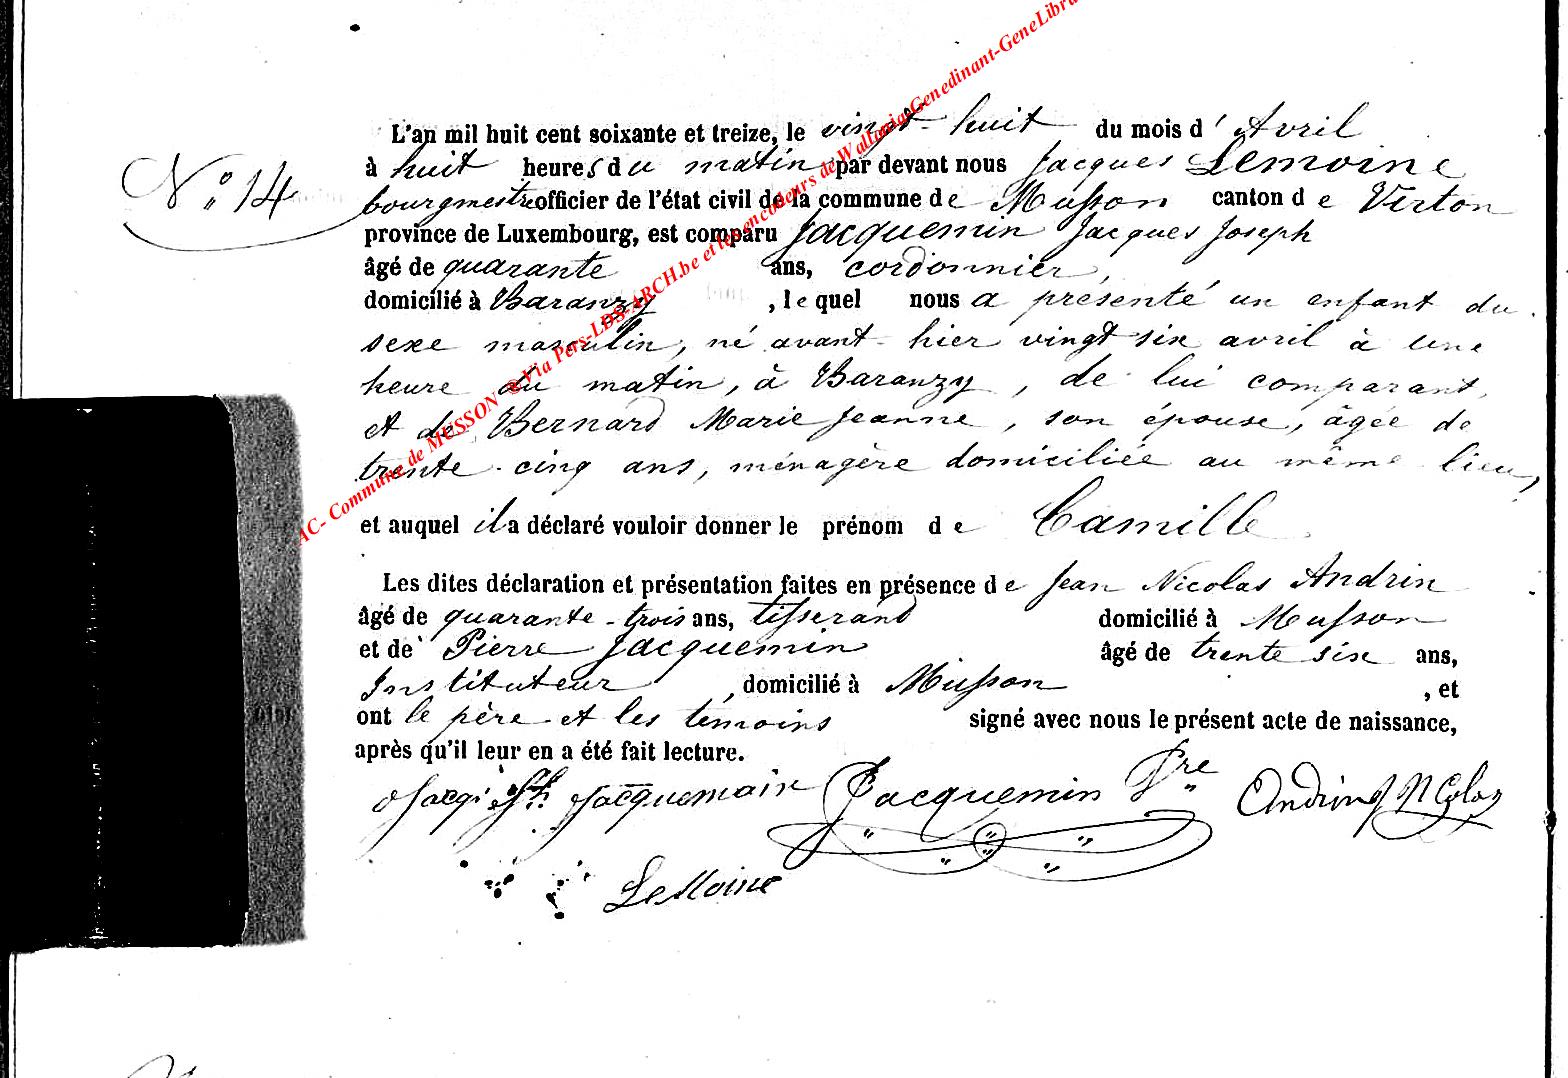 AC- Commune de MUSSON @Via Pers-LDS-ARCH.be et les encodeurs de Wallonia-Genedinant-GeneLibra
L'an mil huit cent soixante et treize, le vingt-huit du mois d' Avril
N° 14
à huit heures du matin par devant nous Jacques Lemoine
bourgmestre officier de l'état civil de la commune de Musson canton de Virton
province de Luxembourg, est comparu Jacquemin Jacques Joseph
âgé de quarante ans, cordonnier,
domicilié à Baranzy, lequel nous a présenté un enfant du
sexe masculin, né avant-hier vingt six avril à une
heure du matin, à Baranzy, de lui comparant,
et de Bernard Marie Jeanne, son épouse, âgée de
trente-cinq ans, ménagère domiciliée au même lieu,
et auquel il a déclaré vouloir donner le prénom de Camille
Les dites déclaration et présentation faites en présence de Jean Nicolas Andrin
âgé de quarante-trois ans, tisserand domicilié à Musson
et de Pierre Jacquemin âgé de trente six ans,
Instituteur, domicilié à Musson, et
ont le père et les témoins signé avec nous le présent acte de naissance,
après qu'il leur en a été fait lecture.
Jacq. Jph. Jacquemain Jacquemin Pre Andrin J Nicolas
LeMoine